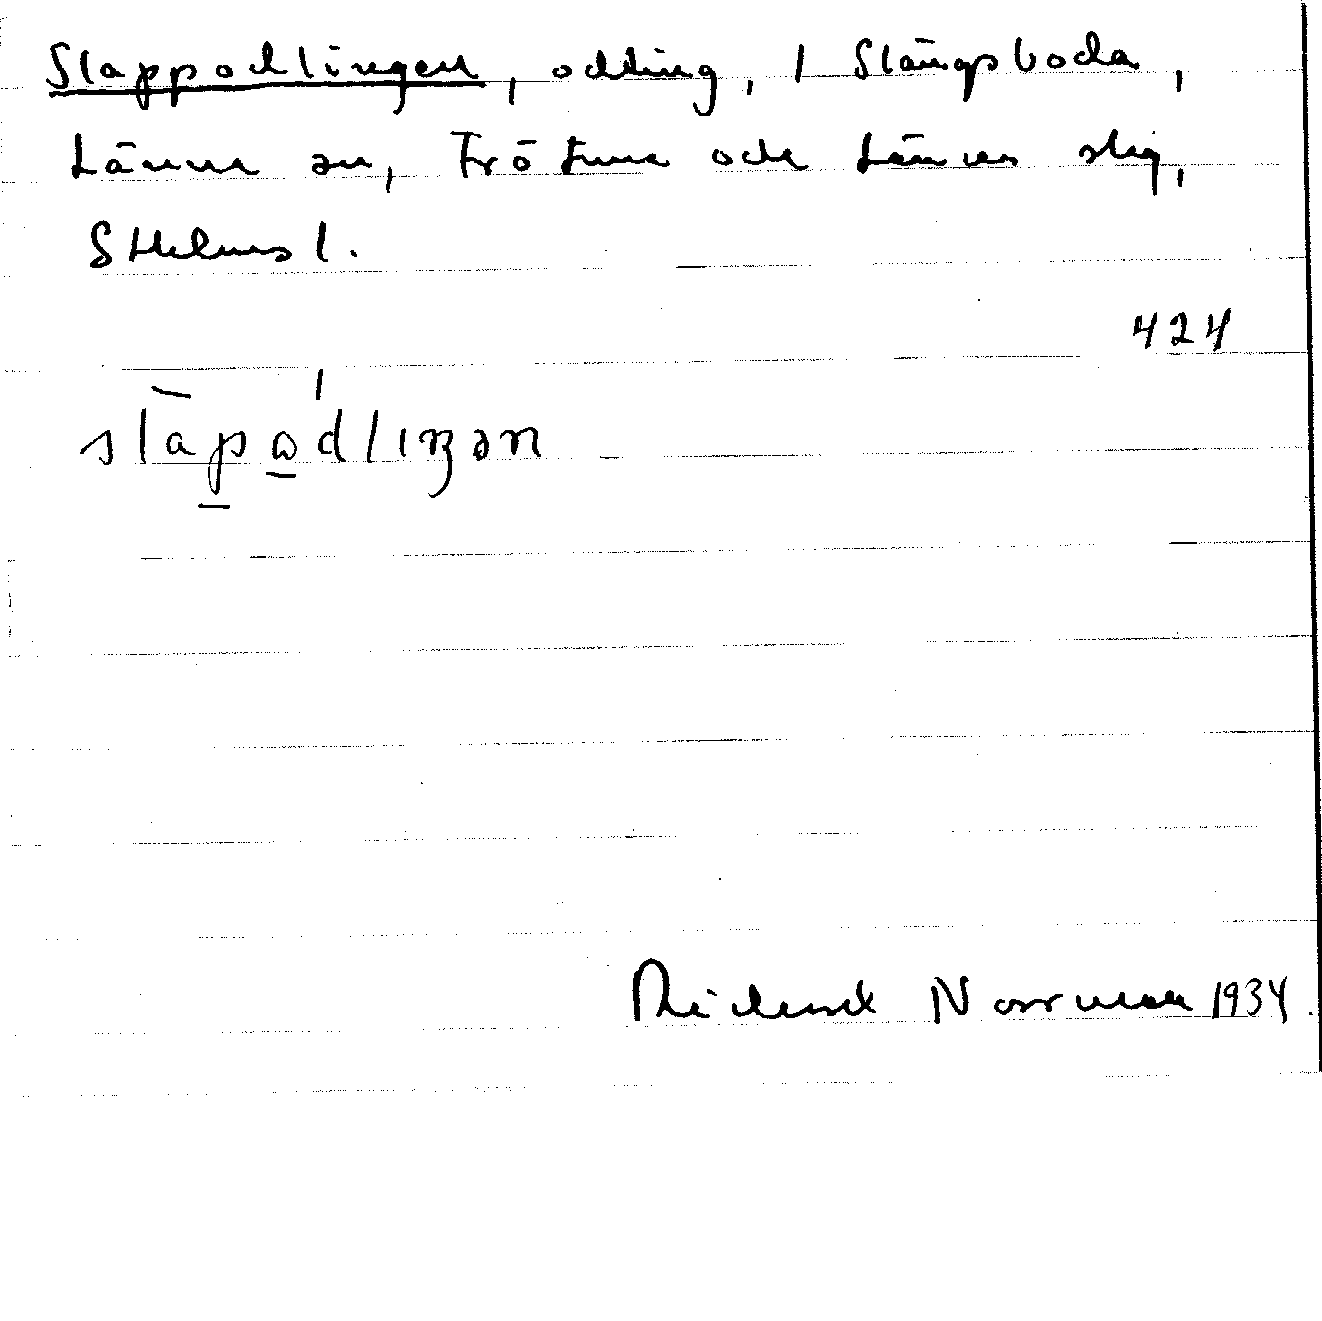 Slappodlingen, odling, 1 Slängsboda,
Länna sn, Frötuna och Länna slg,
Sthlms l.
424
slapωdlıŋən
Rickard Norrman 1934.